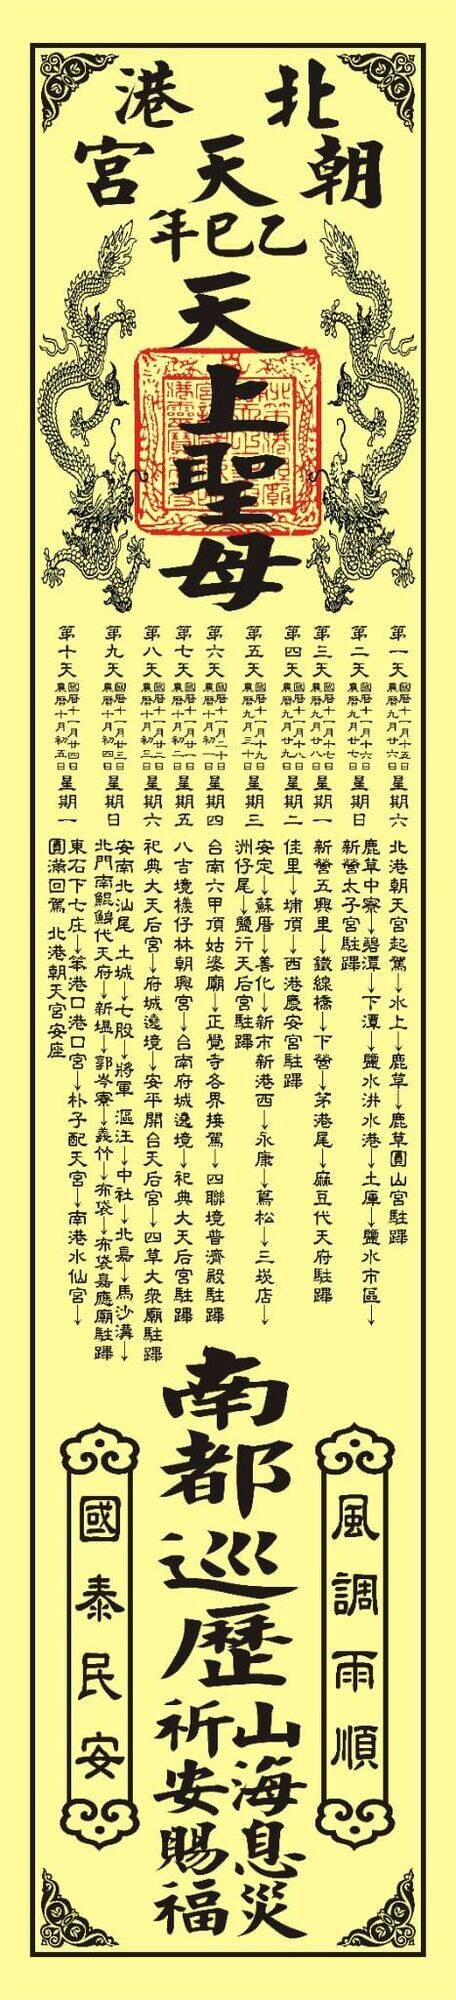 北港
朝天宮
乙巳年
天上聖母
第一天 國曆十一月十五日 農曆九月廿六日 星期六
北港朝天宮起駕→水上→鹿草→鹿草圓山宮駐蹕
第二天 國曆十一月十六日 農曆九月廿七日 星期日
鹿草中寮→碧潭→下潭→鹽水洪水港→土庫→鹽水市區→
新營太子宮駐蹕
第三天 國曆十一月十七日 農曆九月廿八日 星期一
新營五興里→鐵線橋→下營→茅港尾→麻豆代天府駐蹕
第四天 國曆十一月十八日 農曆九月廿九日 星期二
佳里→埔頂→西港慶安宮駐蹕
第五天 國曆十一月十九日 農曆九月三十日 星期三
安定→蘇厝→善化→新市新港西→永康→蔦松→三崁店→
洲仔尾→鹽行天后宮駐蹕
第六天 國曆十一月二十日 農曆十月初一日 星期四
台南六甲頂姑婆廟→正覺寺各界接駕→四聯境普濟殿駐蹕
第七天 國曆十一月廿一日 農曆十月初二日 星期五
八吉境檨仔林朝興宮→台南府城遶境→祀典大天后宮駐蹕
第八天 國曆十一月廿二日 農曆十月初三日 星期六
祀典大天后宮→府城遶境→安平開台天后宮→四草大眾廟駐蹕
第九天 國曆十一月廿三日 農曆十月初四日 星期日
安南北汕尾 土城→七股→將軍 漚汪→中社→北嘉→馬沙溝→
北門南鯤鯓代天府→新塭→郭岑寮→義竹→布袋→布袋嘉應廟駐蹕
第十天 國曆十一月廿四日 農曆十月初五日 星期一
東石下七庄→笨港口港口宮→朴子配天宮→南港水仙宮→
圓滿回駕 北港朝天宮安座
南都巡歷
山海息災
祈安賜福
風調雨順
國泰民安